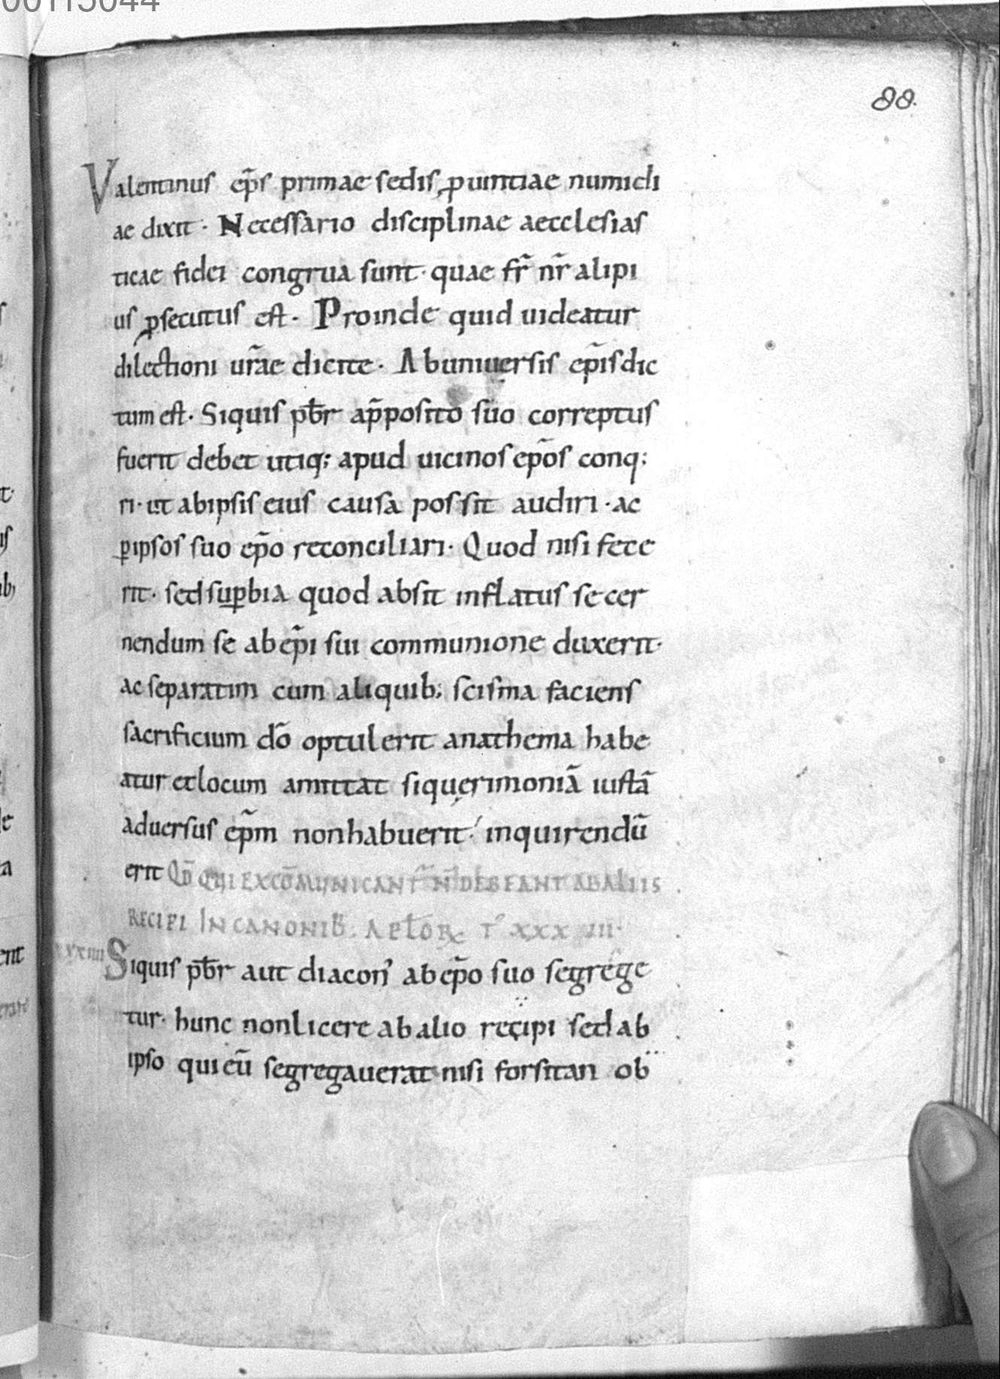 00115044
88.
Valentinus ep̃s primae sedis ꝓuintiae numidi
ae dixit · Necessario disciplinae aecclesias
ticae fidei congrua sunt · quae fr̃ nr̃ alipi
us ꝓsecutus est · Proinde quid uideatur
dilectioni ur̃ae dicite · Ab uniuersis ep̃is dic
tum est · Siquis pb̃r app̃osito suo correptus
fuerit debet utiq; apud uicinos ep̃os conq;
ri · ut abipsis eius causa possit audiri · ac
ꝑipsos suo ep̃o reconciliari · Quod nisi fece
rit · sed suꝑbia quod absit inflatus secer
nendum se ab ep̃i sui communione duxerit ·
ac separatim cum aliquib; scisma faciens
sacrificium dõ optulerit anathema habe
atur et locum amittat si querimoniã iustã
aduersus ep̃m non habuerit · inquirendũ
erit Qd̃ qui EXCÕMUNICANT̃ Ñ DEBEANT AB ALIIS
RECIPI IN CANONIB̃. APLÕR̃ T̊ XXXIIII ·
xxxiiii Siquis pb̃r aut diacon̛ ab ep̃o suo segrege
tur · hunc non licere ab alio recipi sed ab
ipso qui eũ segregauerat nisi forsitan ob